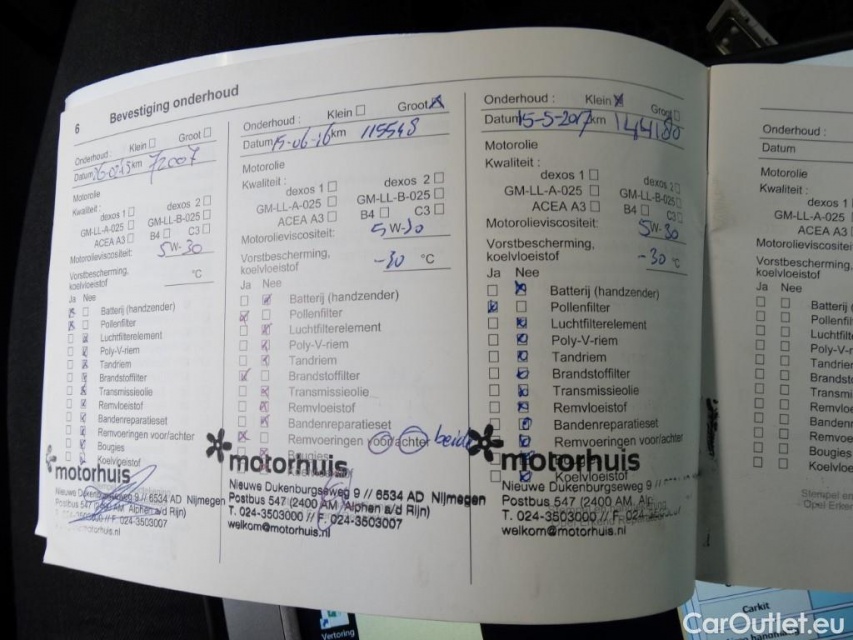 6 Bevestiging onderhoud
Onderhoud : Klein Groot
Datum km 72007
Motorolie
Kwaliteit : dexos 1 dexos 2
GM-LL-A-025 GM-LL-B-025
ACEA A3 B4 C3
Motorolieviscositeit: 5W-30
Vorstbescherming,
koelvloeistof °C
Ja Nee
Batterij (handzender)
Pollenfilter
Luchtfilterelement
Poly-V-riem
Tandriem
Brandstoffilter
Transmissieolie
Remvloeistof
Bandenreparatieset
Remvoeringen voor/achter
Bougies
Koelvloeistof
motorhuis
Nieuwe Dukenburgseweg 9 // 6534 AD Nijmegen
Postbus 547 (2400 AM Alphen a/d Rijn)
T. 024-3503000 // F. 024-3503007
welkom@motorhuis.nl
Onderhoud : Klein Groot
Datum 15-06-16 km 115548
Motorolie
Kwaliteit : dexos 1 dexos 2
GM-LL-A-025 GM-LL-B-025
ACEA A3 B4 C3
Motorolieviscositeit: 5W-30
Vorstbescherming,
koelvloeistof -30 °C
Ja Nee
Batterij (handzender)
Pollenfilter
Luchtfilterelement
Poly-V-riem
Tandriem
Brandstoffilter
Transmissieolie
Remvloeistof
Bandenreparatieset
Remvoeringen voor/achter beide
Bougies
motorhuis
Nieuwe Dukenburgseweg 9 // 6534 AD Nijmegen
Postbus 547 (2400 AM Alphen a/d Rijn)
T. 024-3503000 // F. 024-3503007
welkom@motorhuis.nl
Onderhoud : Klein Groot
Datum 15-5-2017 km 144180
Motorolie
Kwaliteit : dexos 1 dexos 2
GM-LL-A-025 GM-LL-B-025
ACEA A3 B4 C3
Motorolieviscositeit: 5W-30
Vorstbescherming,
koelvloeistof -30 °C
Ja Nee
Batterij (handzender)
Pollenfilter
Luchtfilterelement
Poly-V-riem
Tandriem
Brandstoffilter
Transmissieolie
Remvloeistof
Bandenreparatieset
Remvoeringen voor/achter
motorhuis
Koelvloeistof
Nieuwe Dukenburgseweg 9 //
Postbus 547 (2400 AM Alp
T. 024-3503000 // F. 024-
welkom@motorhuis.nl
Onderhoud :
Datum
Motorolie
Kwaliteit :
dexos 1
GM-LL-A-025
ACEA A3
Motorolieviscositei
Vorstbescherming,
koelvloeistof
Ja Nee
Batterij
Pollenfil
Luchtfil
Poly-V-r
Tandrie
Brandst
Transmi
Remvlo
Bandenr
Remvoe
Bougies
Koelvloe
Stempel en
Opel Erken
Vertoring
Carkit
CarOutlet.eu